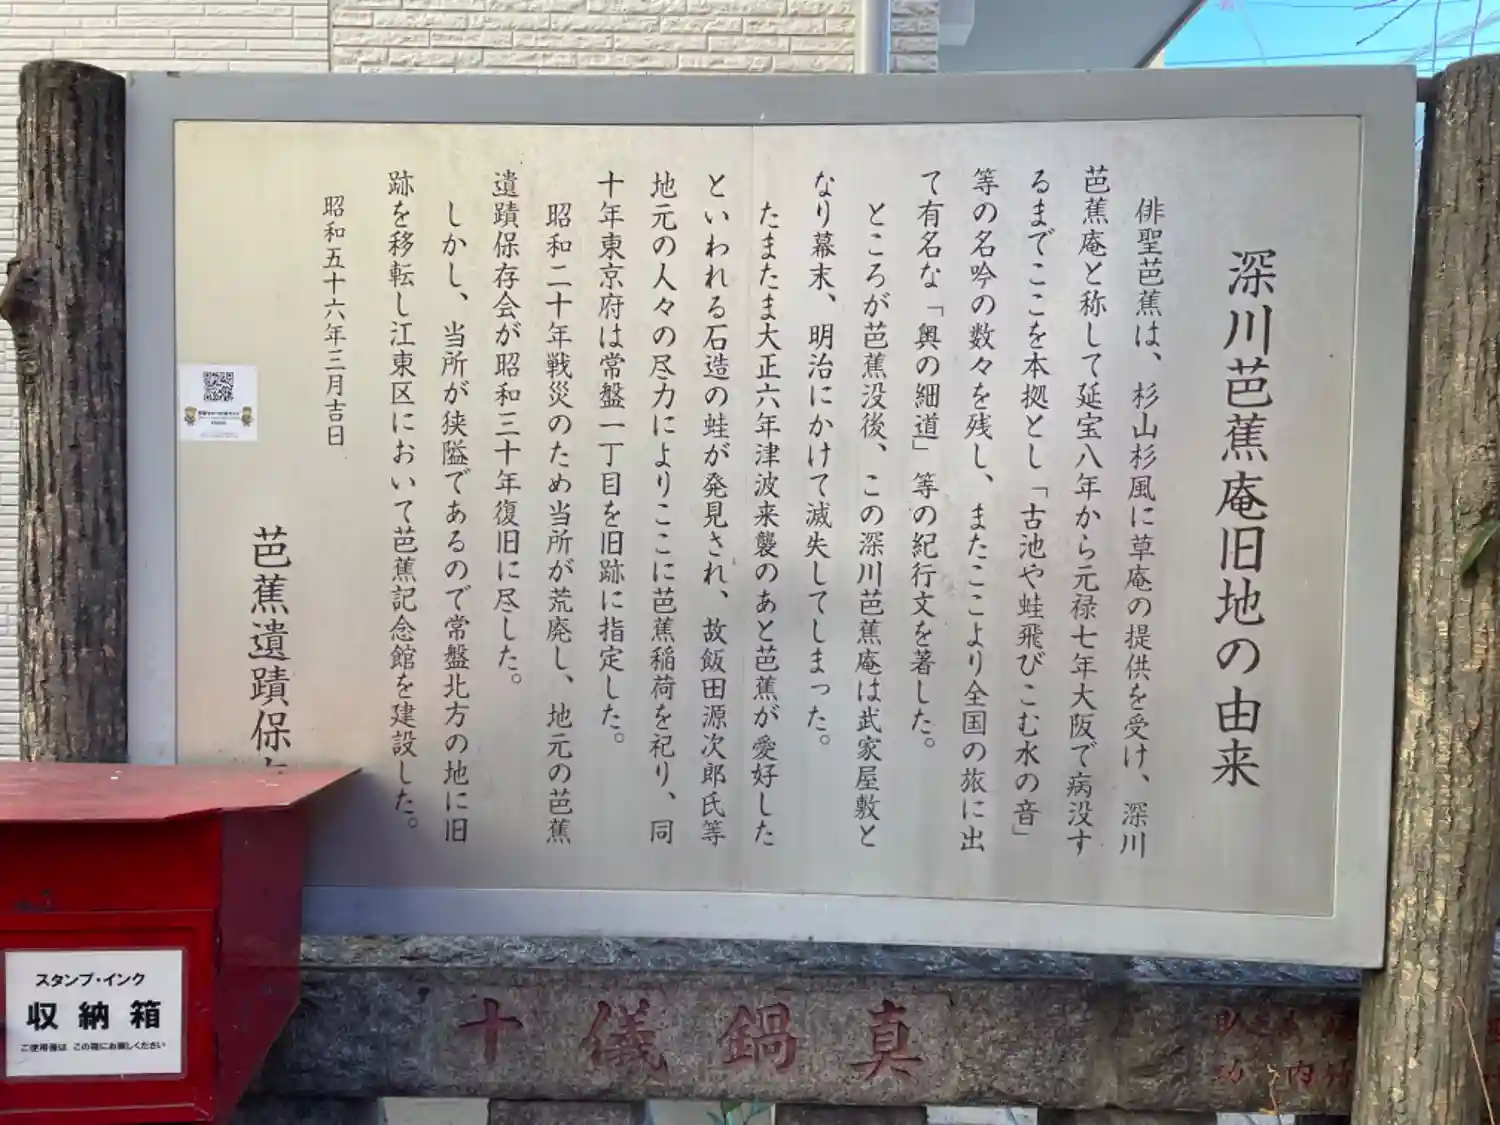 深川芭蕉庵旧地の由来
俳聖芭蕉は、杉山杉風に草庵の提供を受け、深川
芭蕉庵と称して延宝八年から元禄七年大阪で病没す
るまでここを本拠とし「古池や蛙飛びこむ水の音」
等の名吟の数々を残し、またここより全国の旅に出
て有名な「奥の細道」等の紀行文を著した。
ところが芭蕉没後、この深川芭蕉庵は武家屋敷と
なり幕末、明治にかけて滅失してしまった。
たまたま大正六年津波来襲のあと芭蕉が愛好した
といわれる石造の蛙が発見され、故飯田源次郎氏等
地元の人々の尽力によりここに芭蕉稲荷を祀り、同
十年東京府は常盤一丁目を旧跡に指定した。
昭和二十年戦災のため当所が荒廃し、地元の芭蕉
遺蹟保存会が昭和三十年復旧に尽した。
しかし、当所が狭隘であるので常盤北方の地に旧
跡を移転し江東区において芭蕉記念館を建設した。
昭和五十六年三月吉日
芭蕉遺蹟保
スタンプ・インク
収納箱
ご使用後は この箱にお戻しください
十儀鍋真